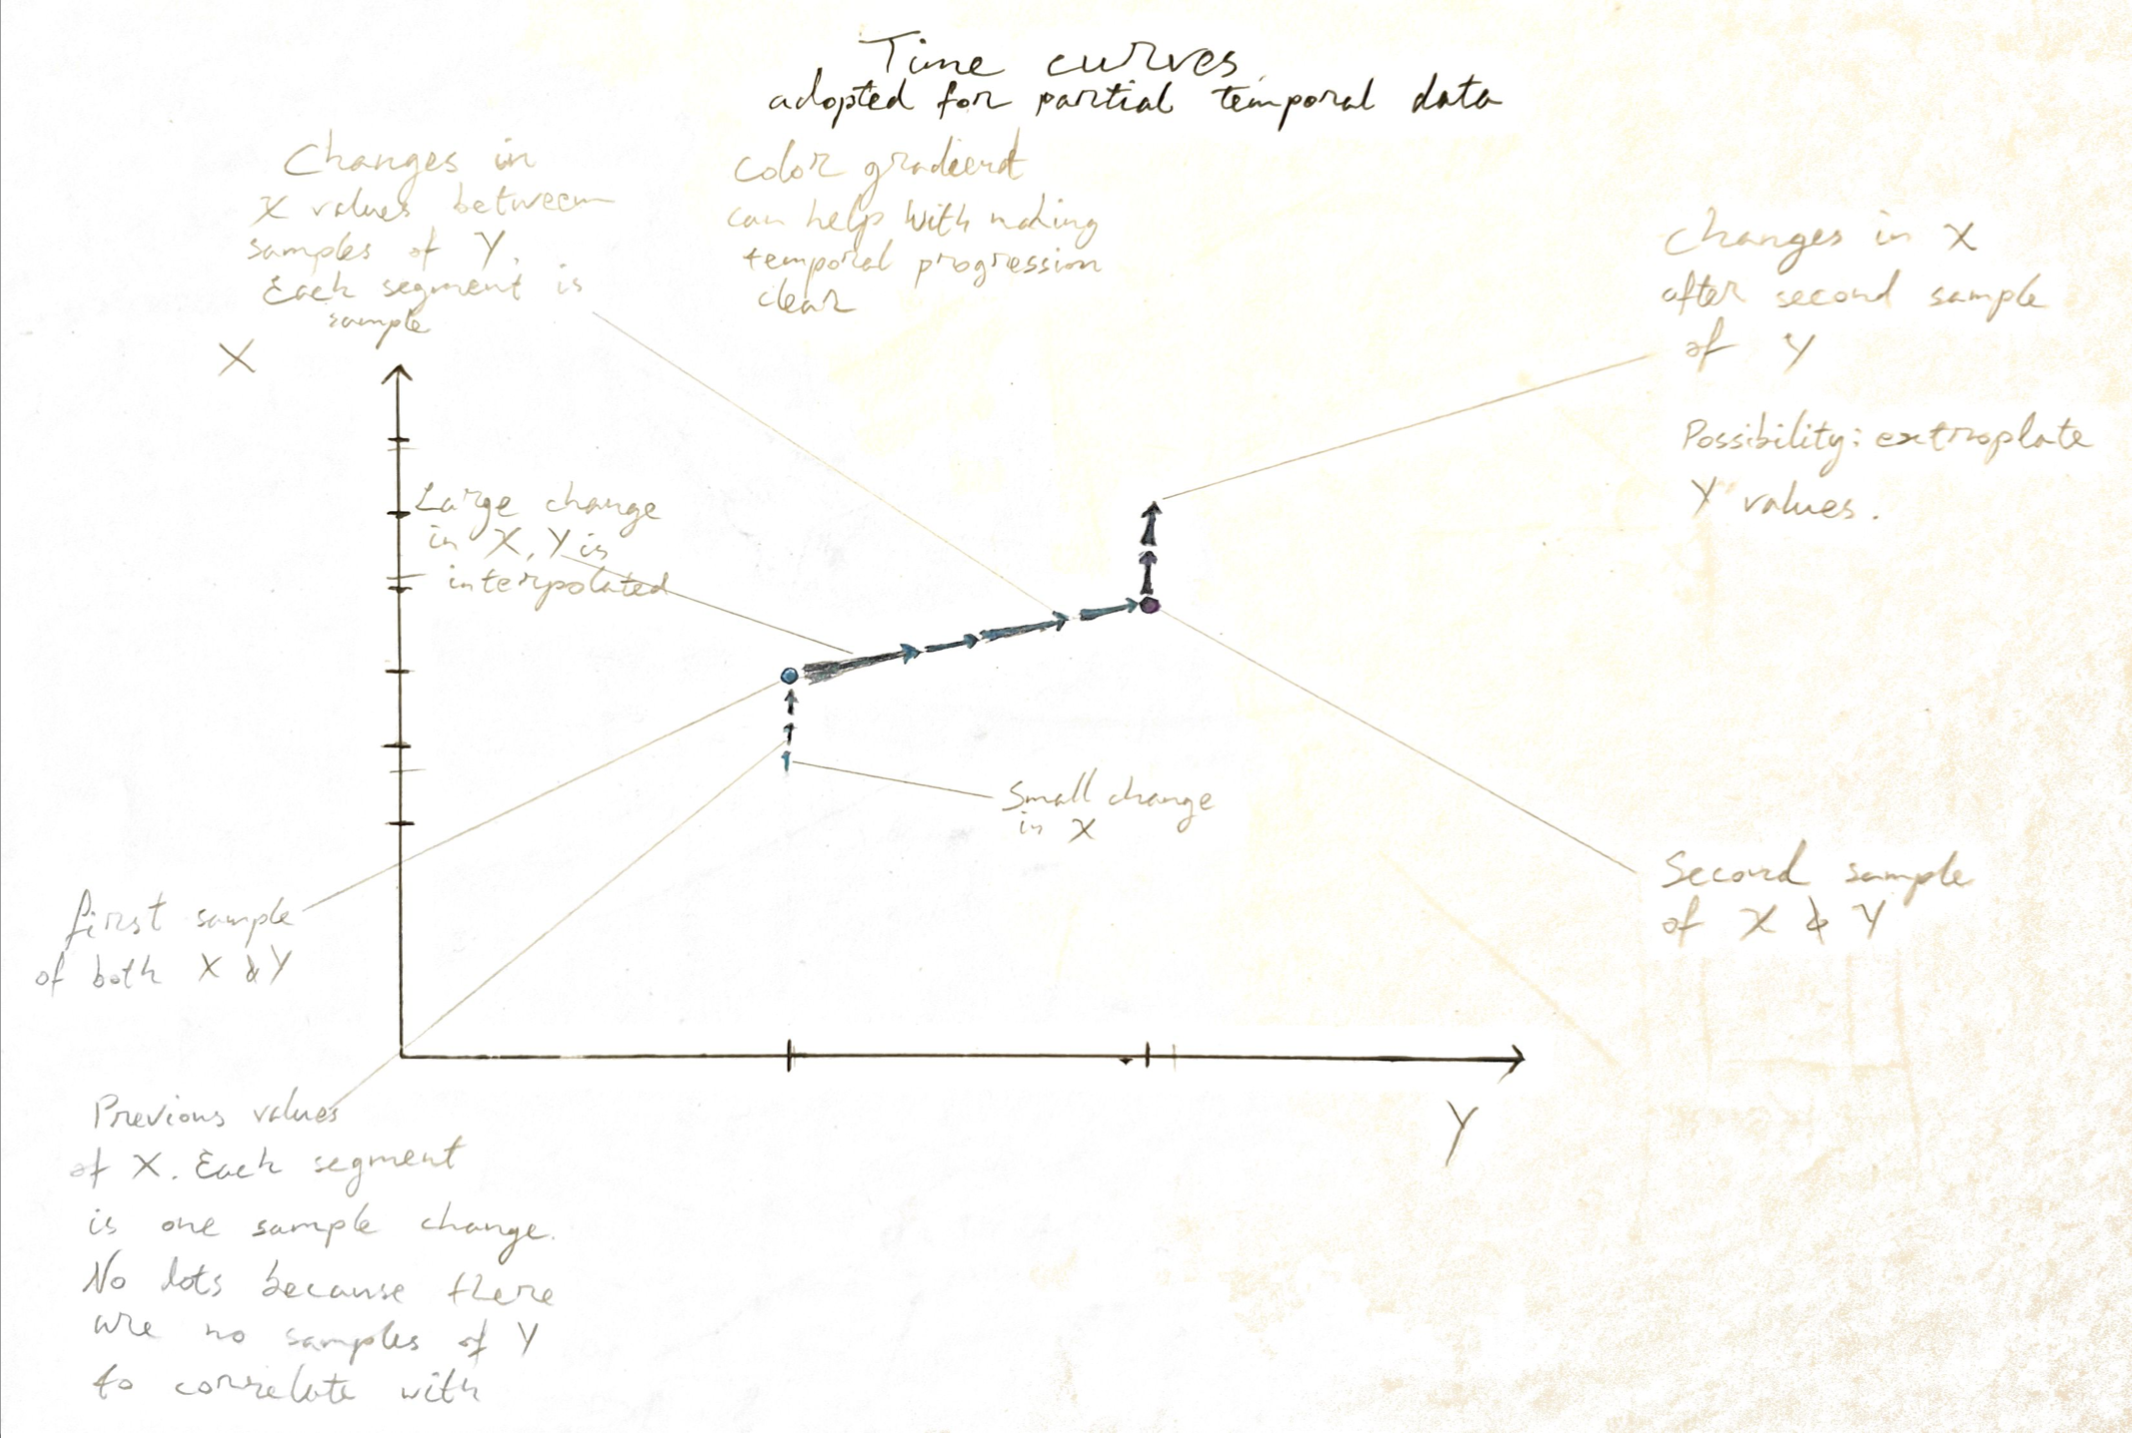 Time curves
adopted for partial temporal data
Changes in
X values between
samples of Y.
Each segment is
sample
color gradient
can help with making
temporal progression
clear
Changes in X
after second sample
of Y
Possibility: extroplate
Y values.
X
Large change
in X, Y is
interpolated
Small change
in X
first sample
of both X & Y
Second sample
of X & Y
Y
Previous values
of X. Each segment
is one sample change.
No dots because there
are no samples of Y
to correlate with